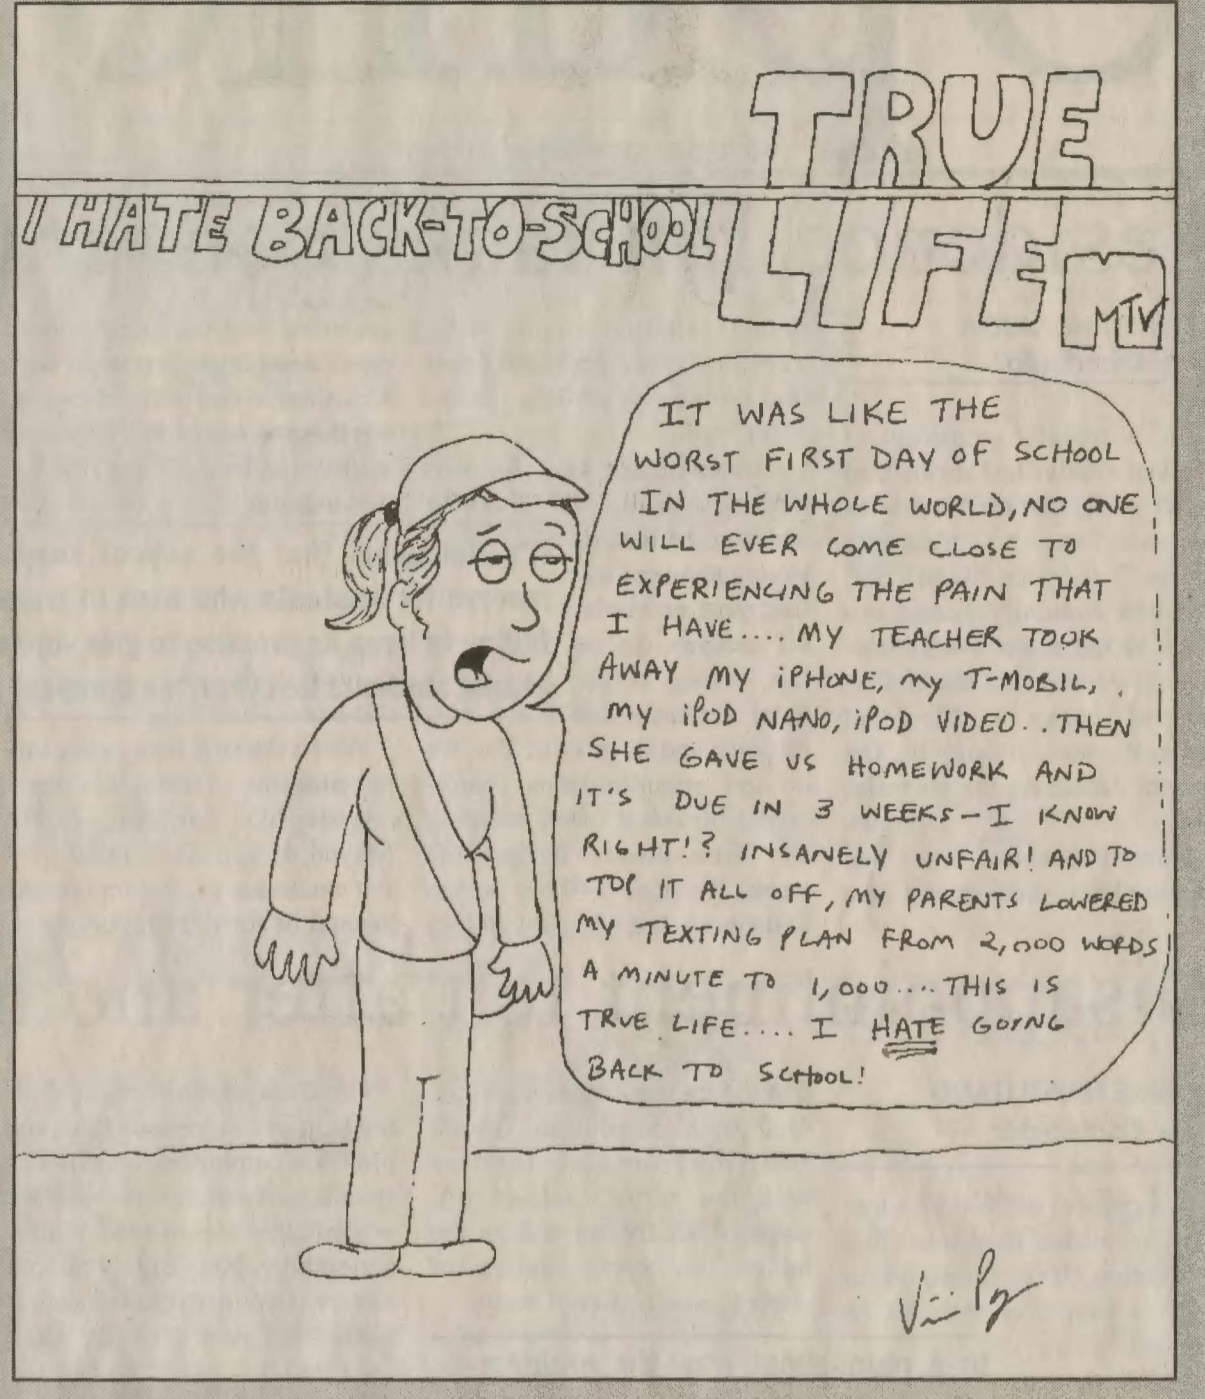 TRUE
I HATE BACK-TO-SCHOOL LIFE MTV
IT WAS LIKE THE
WORST FIRST DAY OF SCHOOL
IN THE WHOLE WORLD, NO ONE
WILL EVER COME CLOSE TO
EXPERIENCING THE PAIN THAT
I HAVE.... MY TEACHER TOOK
AWAY MY iPHONE, MY T-MOBIL,
MY iPOD NANO, iPOD VIDEO.. THEN
SHE GAVE US HOMEWORK AND
IT'S DUE IN 3 WEEKS - I KNOW
RIGHT!? INSANELY UNFAIR! AND TO
TOP IT ALL OFF, MY PARENTS LOWERED
MY TEXTING PLAN FROM 2,000 WORDS
A MINUTE TO 1,000.... THIS IS
TRUE LIFE.... I HATE GOING
BACK TO SCHOOL!